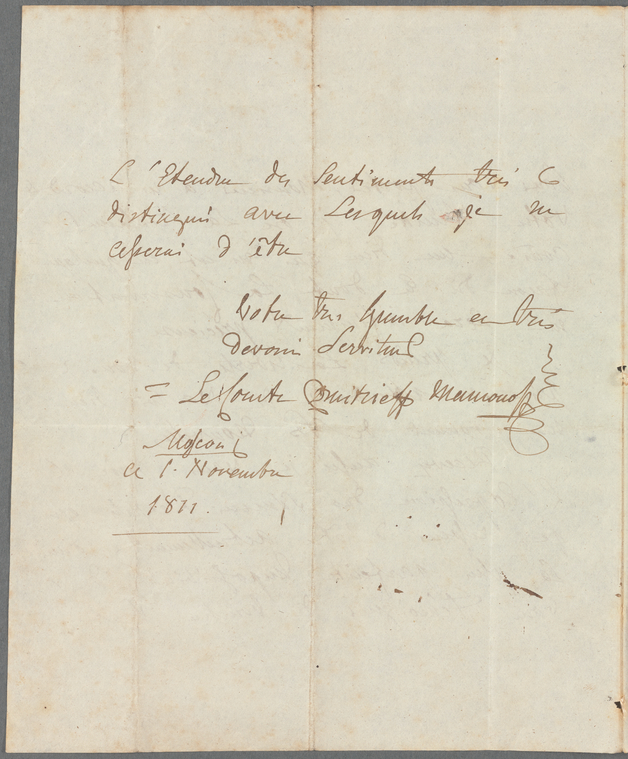 L'Etendue des Sentiments très
distingués avec Lesquels je ne
cesserai d'être
Votre très humble et très
devoué Serviteur
= Le Comte Dmitrieff Mamonoff
Moscou
ce 1. Novembre
1811.